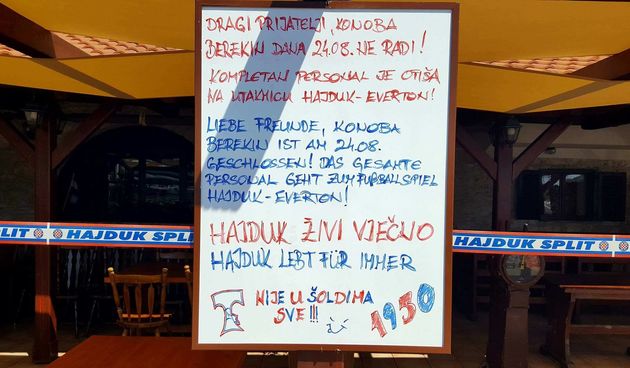 DRAGI PRIJATELJI, KONOBA
BEREKIN DANA 24.08. NE RADI!
KOMPLETAN PERSONAL JE OTIŠA
NA UTAKMICU HAJDUK-EVERTON!
LIEBE FREUNDE, KONOBA
BEREKIN IST AM 24.08.
GESCHLOSSEN! DAS GESAMTE
PERSONAL GEHT ZUM FUßBALLSPIEL
HAJDUK-EVERTON!
HAJDUK ŽIVI VJEČNO
HAJDUK LEBT FÜR IMMER
NIJE U ŠOLDIMA
SVE!!!
1950
HAJDUK SPLIT
HAJDUK SPLIT